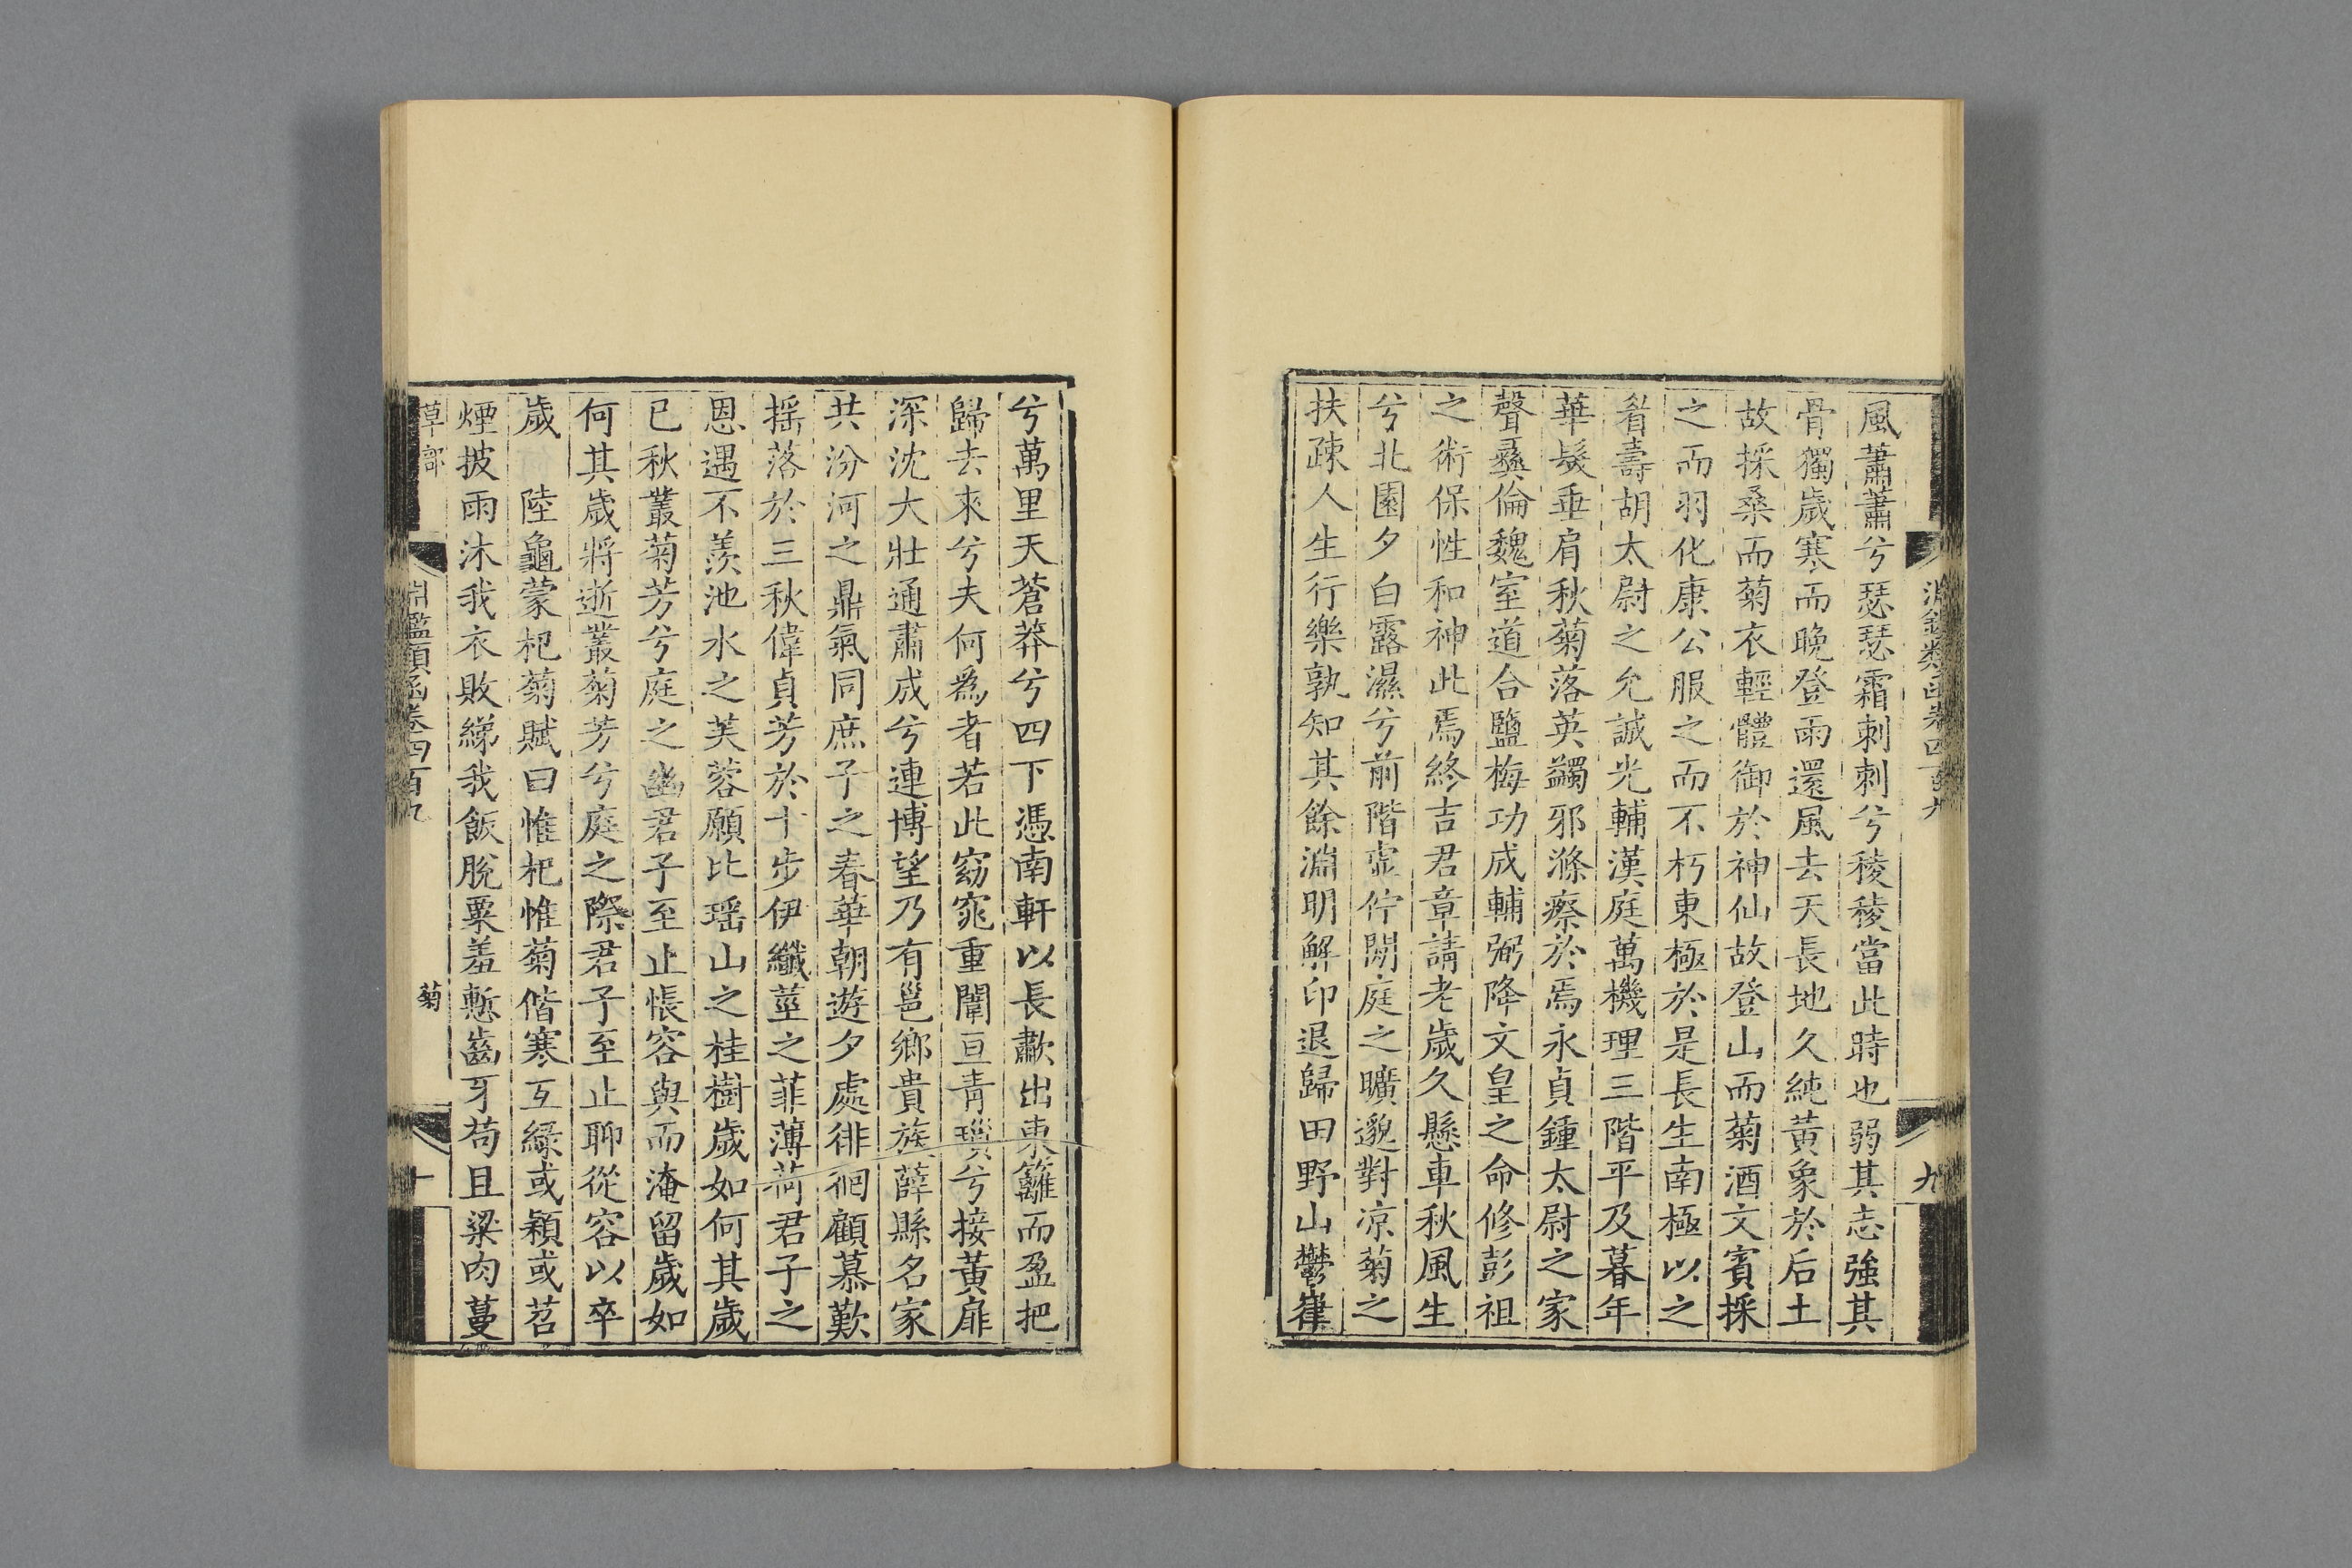 風蕭蕭兮瑟瑟霜刺刺兮稜稜當此時也弱其志強其
骨獨歲寒而晚登雨還風去天長地久純黃象於后土
故採桑而菊衣輕體御於神仙故登山而菊酒文賓採
之而羽化康公服之而不朽東極於是長生南極以之
眉壽胡太尉之允誠光輔漢庭萬機理三階平及暮年
華髮垂肩秋菊落英蠲邪滌瘵於焉永貞鍾太尉之家
聲彞倫魏室道合鹽梅功成輔弼降文皇之命修彭祖
之術保性和神此焉終吉君章請老歲久懸車秋風生
兮北園夕白露濕兮前階虛佇閒庭之曠邈對凉菊之
扶疎人生行樂孰知其餘淵明解印退歸田野山鬱嵂
九
兮萬里天蒼莽兮四下憑南軒以長歗出東籬而盈把
歸去來兮夫何爲者若此窈窕重闈亘青瑣兮接黃扉
深沈大壯通肅成兮連博望乃有邕鄉貴族薛縣名家
共汾河之鼎氣同庶子之春華朝遊夕處徘徊顧慕歎
搖落於三秋偉貞芳於十步伊纖莖之菲薄荷君子之
恩遇不羨池水之芙蓉願比瑤山之桂樹歲如何其歲
已秋叢菊芳兮庭之幽君子至止悵容與而淹留歲如
何其歲將逝叢菊芳兮庭之際君子至止聊從容以卒
歲　陸龜蒙杞菊賦曰惟杞惟菊偕寒互綠或穎或苕
煙披雨沐我衣敗綈我飯脫粟羞慙齒牙苟且梁肉蔓
草部
淵鑑類函卷四百九
菊
十